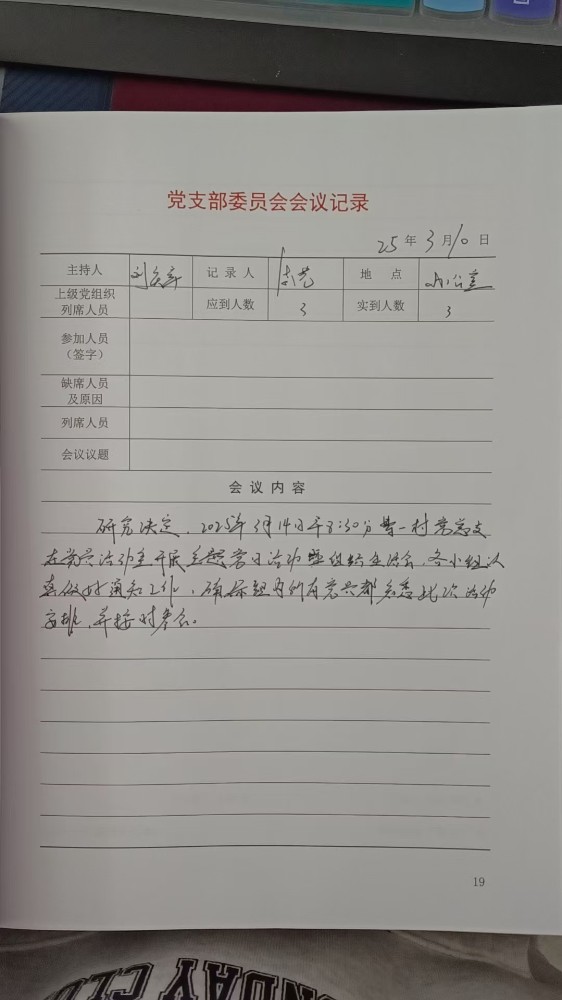 党支部委员会会议记录
25年3月10日
主持人 记录人 地点 办公室
上级党组织列席人员 应到人数 3 实到人数 3
参加人员（签字）
缺席人员及原因
列席人员
会议议题
会议内容
研究决定，2025年3月14日下午3:30分 一村党总支
在党员活动室开展主题党日活动暨组织生活会，各小组认
真做好通知工作，确保组内所有党员都知悉此次活动
安排，并按时参会。
19